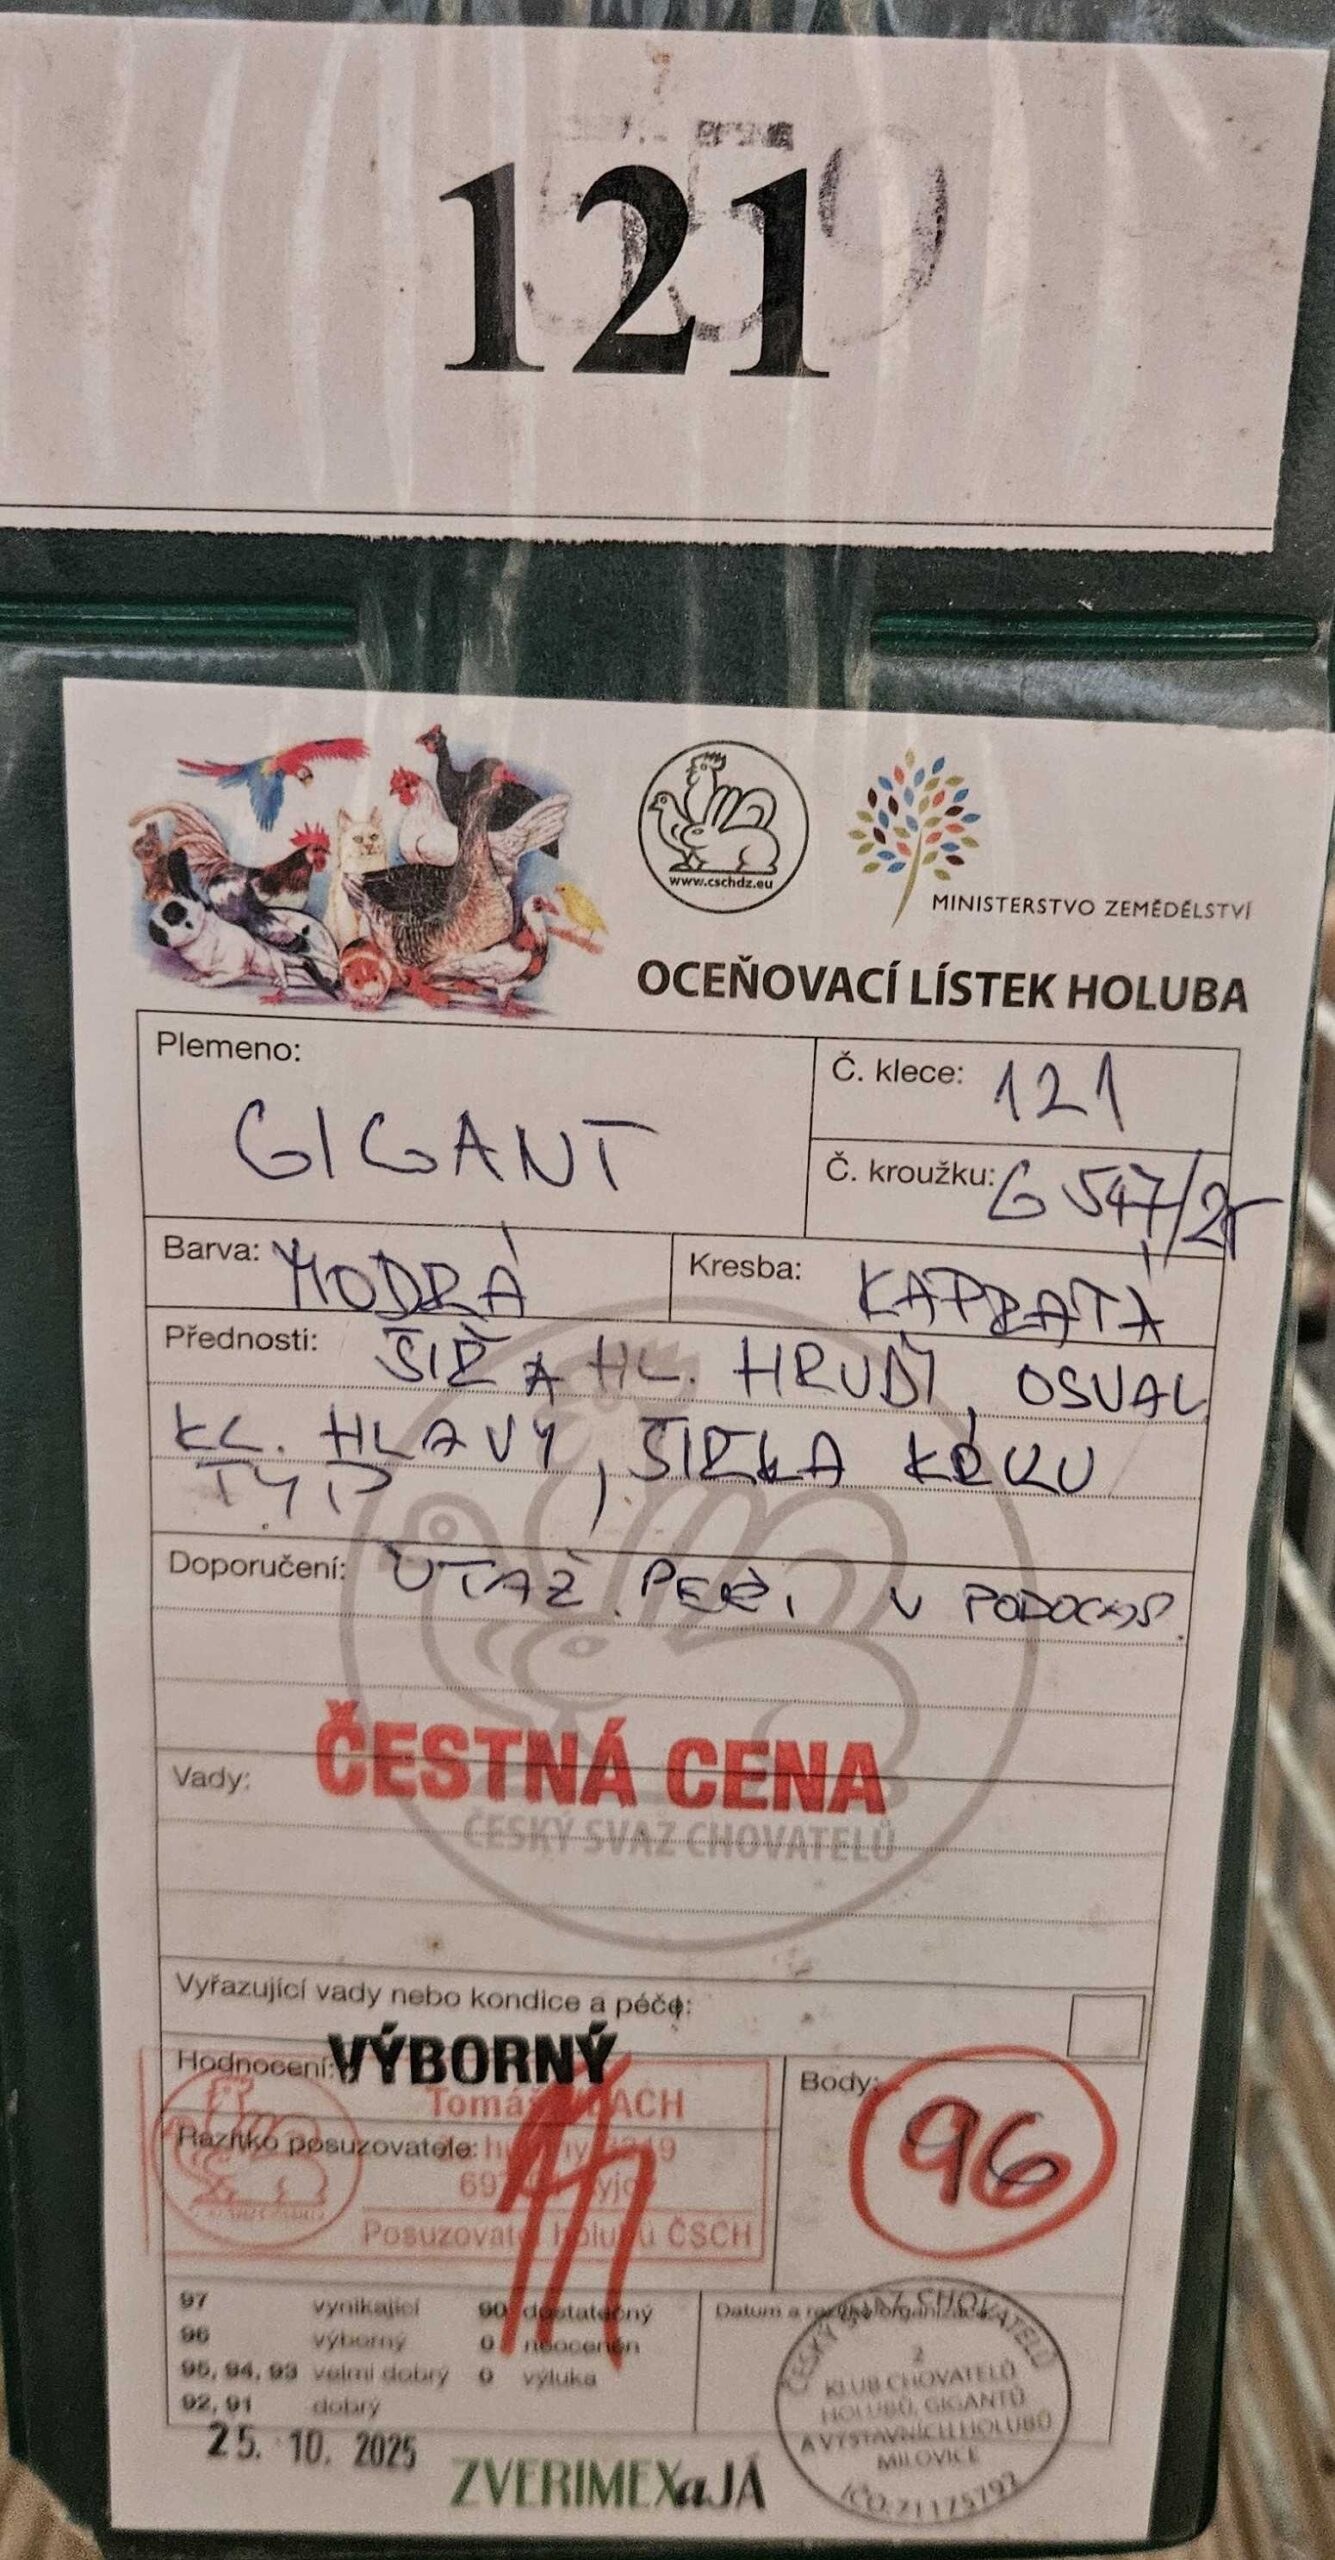 121
www.cschdz.eu
MINISTERSTVO ZEMĚDĚLSTVÍ
OCEŇOVACÍ LÍSTEK HOLUBA
Plemeno: GIGANT
Č. klece: 121
Č. kroužku: G 547/25
Barva: MODRÁ
Kresba: KAPRATÁ
Přednosti: ŠÍŘ A HL. HRUDI, OSVAL
KL. HLAVY, ŠÍŘKA KRKU
TYP
Doporučení: UTAŽ. PEŘÍ V PODOCAS.
ČESTNÁ CENA
Vady:
ČESKÝ SVAZ CHOVATELŮ
Vyřazující vady nebo kondice a péče:
Hodnocení: VÝBORNÝ
Body: 96
Tomáš
Razítko posuzovatele:
Posuzovatel holubů ČSCH
97 vynikající 90 dostatečný
96 výborný 0 neoceněn
95, 94, 93 velmi dobrý 0 výluka
92, 91 dobrý
Datum a razítko organizace
ČESKÝ SVAZ CHOVATELŮ
2
KLUB CHOVATELŮ
HOLUBŮ, GIGANTŮ
A VÝSTAVNÍCH HOLUBŮ
MILOVICE
IČO: 71175792
25. 10. 2025
ZVERIMEX a JÁ